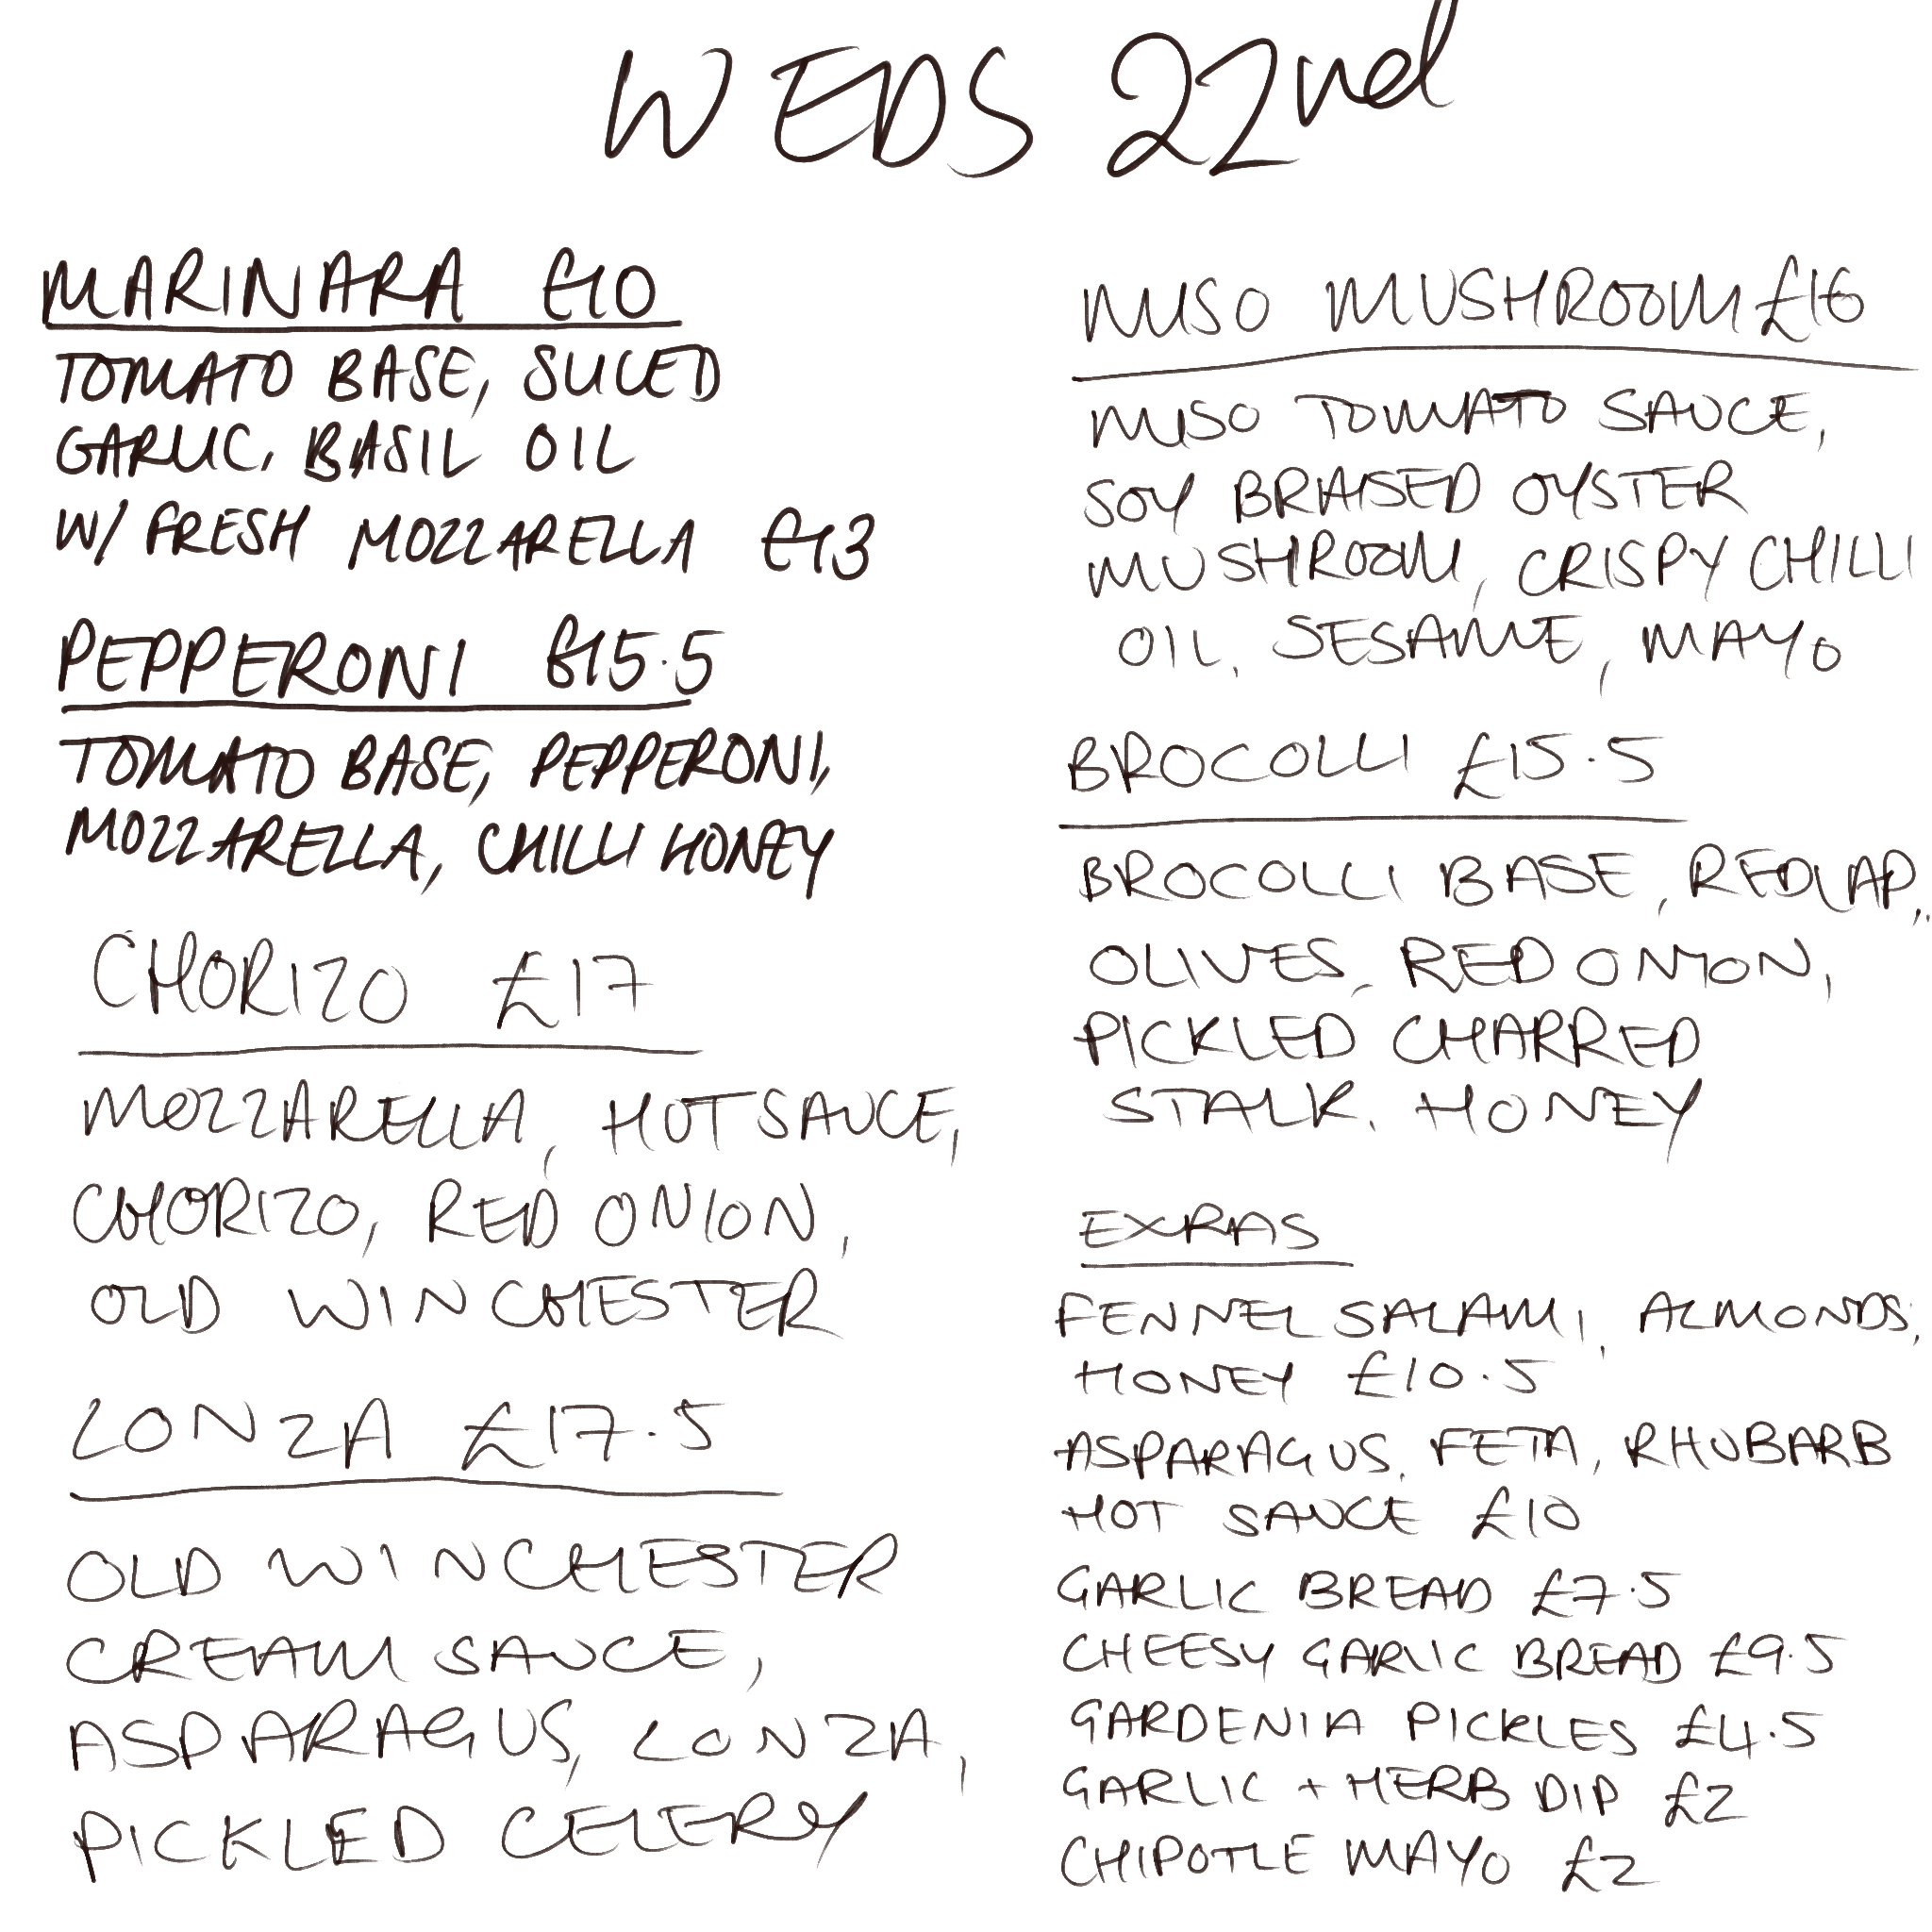 WEDS 22nd
MARINARA £10
TOMATO BASE, SLICED
GARLIC, BASIL OIL
W/ FRESH MOZZARELLA £13
PEPPERONI £15.5
TOMATO BASE, PEPPERONI,
MOZZARELLA, CHILLI HONEY
CHORIZO £17
MOZZARELLA, HOT SAUCE,
CHORIZO, RED ONION,
OLD WINCHESTER
LONZA £17.5
OLD WINCHESTER
CREAM SAUCE,
ASPARAGUS, LONZA,
PICKLED CELERY
MISO MUSHROOM £16
MISO TOMATO SAUCE,
SOY BRAISED OYSTER
MUSHROOM, CRISPY CHILLI
OIL, SESAME, MAYO
BROCOLLI £15.5
BROCOLLI BASE, REDLAP,
OLIVES, RED ONION,
PICKLED CHARRED
STALK, HONEY
EXRAS
FENNEL SALAMI, ALMONDS,
HONEY £10.5
ASPARAGUS, FETA, RHUBARB
HOT SAUCE £10
GARLIC BREAD £7.5
CHEESY GARLIC BREAD £9.5
GARDENIA PICKLES £4.5
GARLIC + HERB DIP £2
CHIPOTLE MAYO £2